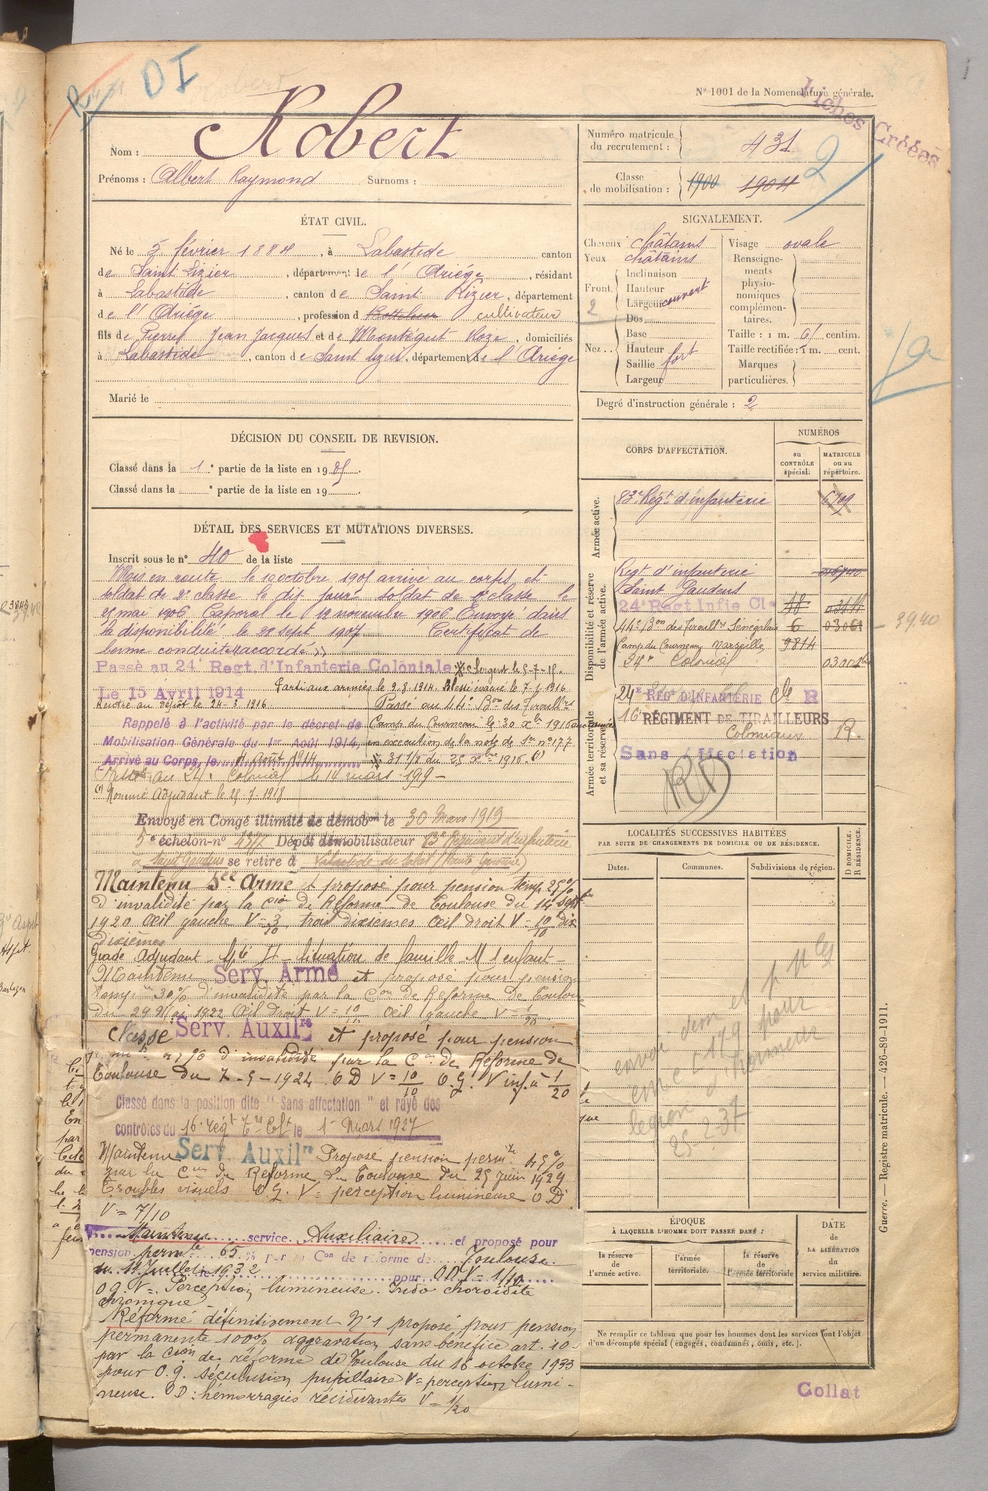 DI
N° 1001 de la Nomenclature générale.
Fiches Créées
Nom : Robert
Prénoms : Albert Raymond Surnoms :
Numéro matricule du recrutement : 431
Classe de mobilisation : 1900 1904
2
ÉTAT CIVIL.
Né le 5 février 1884, à Labastide canton
de Saint Lizier, département de l'Ariège, résidant
à Labastide, canton de Saint Lizier, département
de l'Ariège, profession d cultivateur
fils de Pierre Jean Jacques et de Montégut Roze, domiciliés
à Labastide, canton de Saint Lizier, département de l'Ariège
Marié le
SIGNALEMENT.
Cheveux châtains
Yeux châtains
Front. Inclinaison
Hauteur
Largeur couvert
2
Nez.. Dos
Base
Hauteur
Saillie fort
Largeur
Visage ovale
Renseignements physionomiques complémentaires.
Taille : 1 m. 61 centim.
Taille rectifiée : 1 m. cent.
Marques particulières.
Degré d'instruction générale : 2
DÉCISION DU CONSEIL DE REVISION.
Classé dans la 1e partie de la liste en 1905
Classé dans la e partie de la liste en 19
DÉTAIL DES SERVICES ET MUTATIONS DIVERSES.
Inscrit sous le n° 40 de la liste
Mis en route le 10 octobre 1905 arrivé au corps et
soldat de 2e classe le dit jour. soldat de 1e classe le
21 mai 1906 Caporal le 12 novembre 1906 Envoyé dans
la disponibilité le 28 sept 1907 Certificat de
bonne conduite "accordé"
Passé au 24e Regt. d'Infanterie Coloniale
Le 15 Avril 1914
Parti aux armées le 2.8.1914. Blessé évacué le 7-3 1916
Rentré au dépôt le 24-3 1916 Passé au 44e Bon des Tirailleurs
Rappelé à l'activité par le décret de
Mobilisation Générale du 1er Août 1914,
Arrivé au Corps le
en exécution de la note de
au 24e Colonial le 14 mars 199-
(1) Nommé Adjudant le 21-7-1918
Envoyé en Congé illimité de démobon le 30 Mars 1919
5e échelon-n° 4977 Dépôt démobilisateur 83e Régiment d'infanterie
à Saint Gaudens se retire à
Maintenu Scé Armé & proposé pour pension temp. 25%
d'invalidité par la Cion de Réforme de Toulouse du 14 sept
1920 Œil gauche V=3/10 trois dixièmes Œil droit V=10/10 dix
dixièmes
Grade Adjudant - Situation de famille M 1 enfant -
Maintenu Serv. Armé et proposé pour pension
temp. 30% d'invalidité par la Con de Réforme De Toulouse
du 29 Mai 1922 Œil Droit V=10 Œil gauche V=1/20
Classé Serv. Auxilre et proposé pour pension
d'invalidité par la Con de Réforme de
Toulouse du 7-5-1924 OD V=10/10 OG. V inf à 1/20
Classé dans la position dite "Sans affectation" et rayé des
contrôles du 16e régt Tir Col le 1er Mars 1927
Maintenu Serv. Auxilre Proposé pension perm. 45%
par la Con de Réforme De Toulouse du 25 juin 1929
Troubles visuels O.G. V= perception lumineuse O D
V = 7/10
Maintenu service Auxiliaire et proposé pour
pension permte 65 % par la Con de réforme de Toulouse
du 19 Juillet 1932 pour OD V=1/10
O g. V= Perception lumineuse. Irido choroïdite
chronique
Réformé définitivement N°1 proposé pour pension
permanente 100% aggravation sans bénéfice art. 10
par la Cson de réforme de Toulouse du 16 octobre 1933
pour O.g. séclusion pupillaire V=perception lumi-
neuse. OD : hémorragies récidivantes V=1/20
CORPS D'AFFECTATION.
NUMÉROS
au CONTRÔLE spécial.
MATRICULE ou au répertoire.
Armée active.
83e Régt d'infanterie
Disponibilité et réserve de l'armée active.
Régt d'infanterie
Saint Gaudens
24e Regt Infie Cle
44e Bon des Tiraill. Sénégalais 6
Camp du Courneau Marseille 9814
24e Colonial
3940
Armée territoriale et sa réserve.
24e REGt D'INFANTERIE Cle R
16e RÉGIMENT DE TIRAILLEURS
Coloniaux R.
Sans affectation
RD
LOCALITÉS SUCCESSIVES HABITÉES
PAR SUITE DE CHANGEMENTS DE DOMICILE OU DE RÉSIDENCE.
Dates.
Communes.
Subdivisions de région.
D DOMICILE. R RÉSIDENCE.
envoi dem et p
en C 179 pour
légion d'honneur
25-2-37
ÉPOQUE
À LAQUELLE L'HOMME DOIT PASSER DANS :
la réserve de l'armée active.
l'armée territoriale.
la réserve de l'armée territoriale
DATE de LA LIBÉRATION du service militaire.
Ne remplir ce tableau que pour les hommes dont les services font l'objet
d'un décompte spécial (engagés, condamnés, omis, etc.).
Collat
Guerre. — Registre matricule. — 426-89-1911.